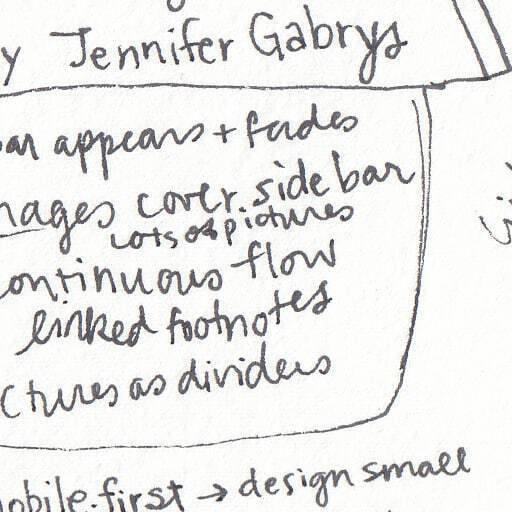 y Jennifer Gabrys
bar appears + fades
mages cover. side bar
lots of pictures
continuous flow
linked footnotes
ctures as dividers
mobile. first → design small